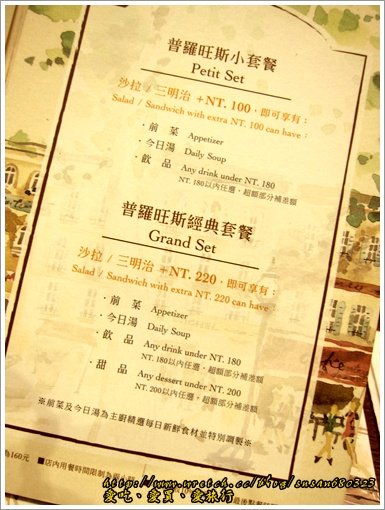 普羅旺斯小套餐
Petit Set
沙拉 / 三明治 +NT. 100，即可享有：
Salad / Sandwich with extra NT. 100 can have：
・前 菜 Appetizer
・今日湯 Daily Soup
・飲 品 Any drink under NT. 180
NT. 180以內任選，超額部分補差額
普羅旺斯經典套餐
Grand Set
沙拉 / 三明治 +NT. 220，即可享有：
Salad / Sandwich with extra NT. 220 can have：
・前 菜 Appetizer
・今日湯 Daily Soup
・飲 品 Any drink under NT. 180
NT. 180以內任選，超額部分補差額
・甜 品 Any dessert under NT. 200
NT. 200以內任選，超額部分補差額
※前菜及今日湯為主廚精選每日新鮮食材並特別調製※
為160元 ■店內用餐時間限制為兩小時
http://www.wretch.cc/blog/susan680323
愛吃、愛買、愛旅行